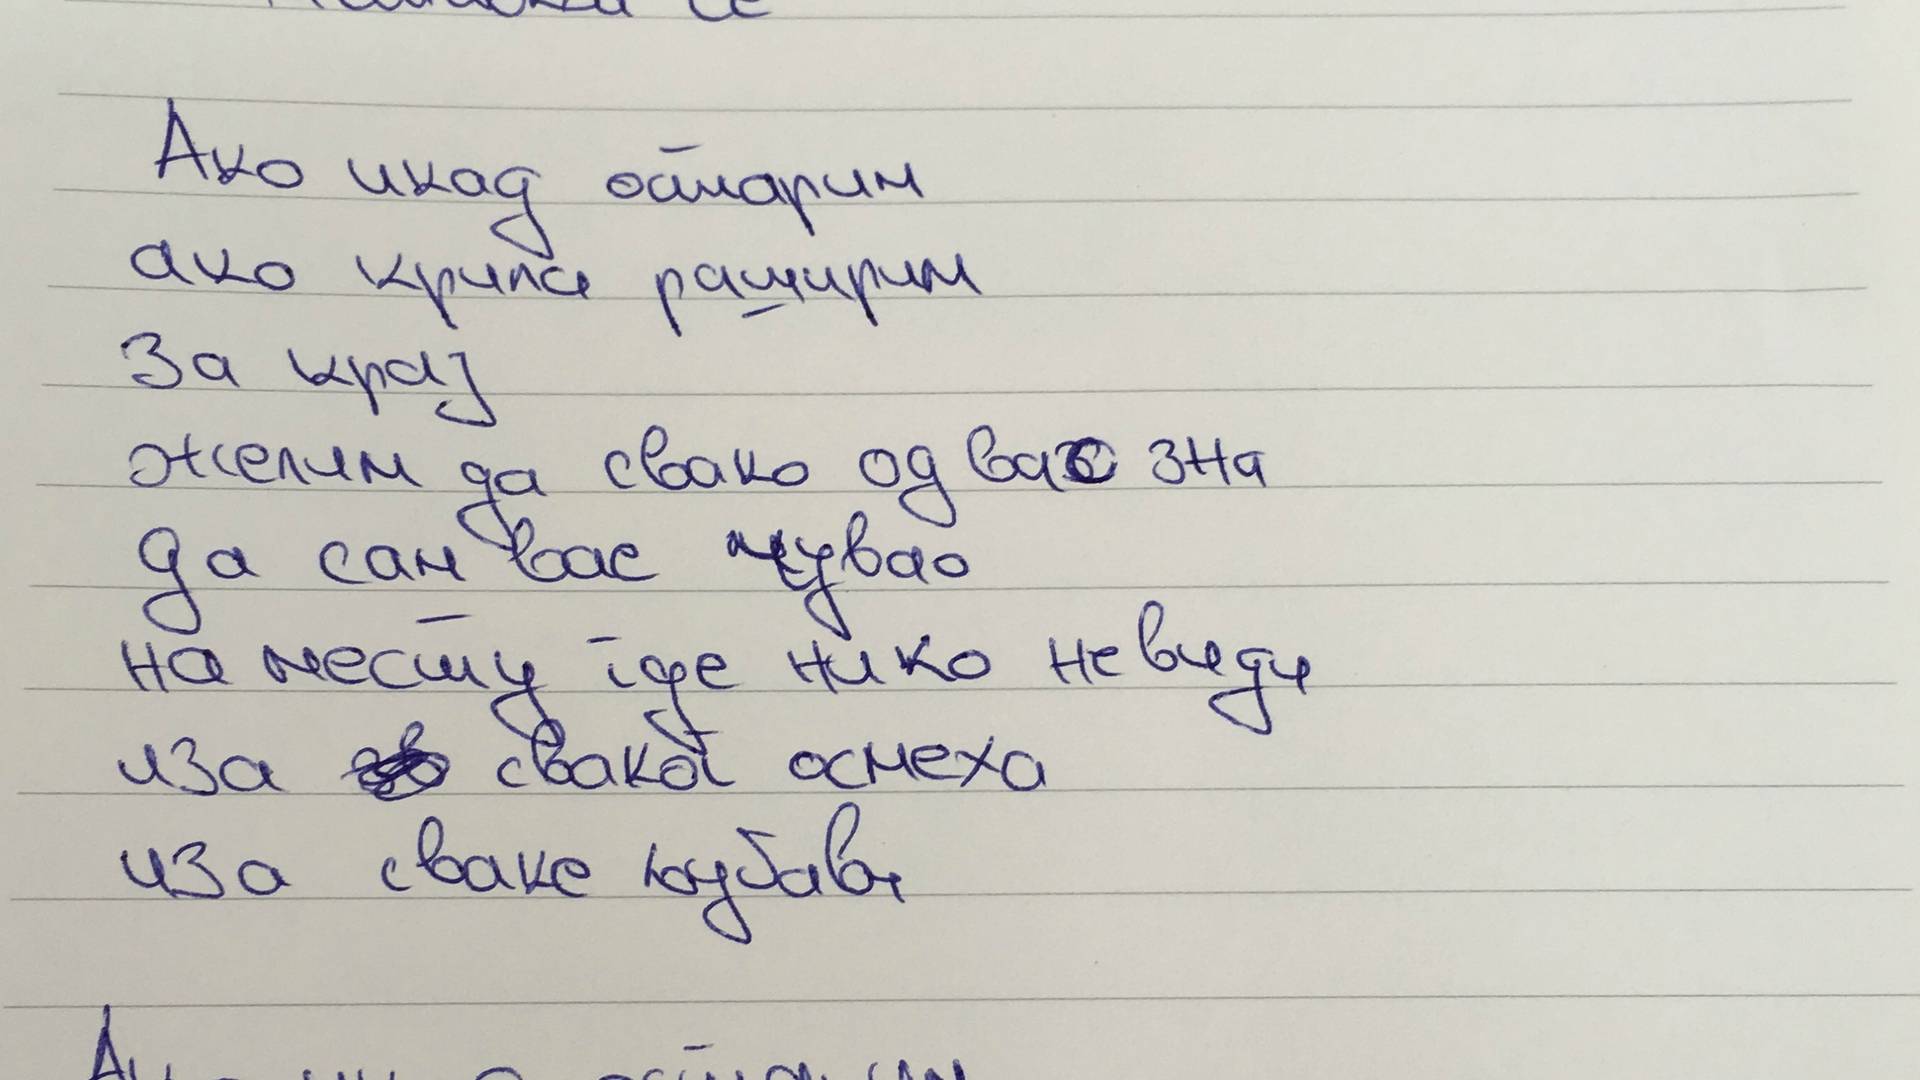 Ако икад остарим
ако крила раширим
За крај
желим да свако од вас зна
да сам вас чувао
на месту где нико не види
иза сваког осмеха
иза сваке љубави